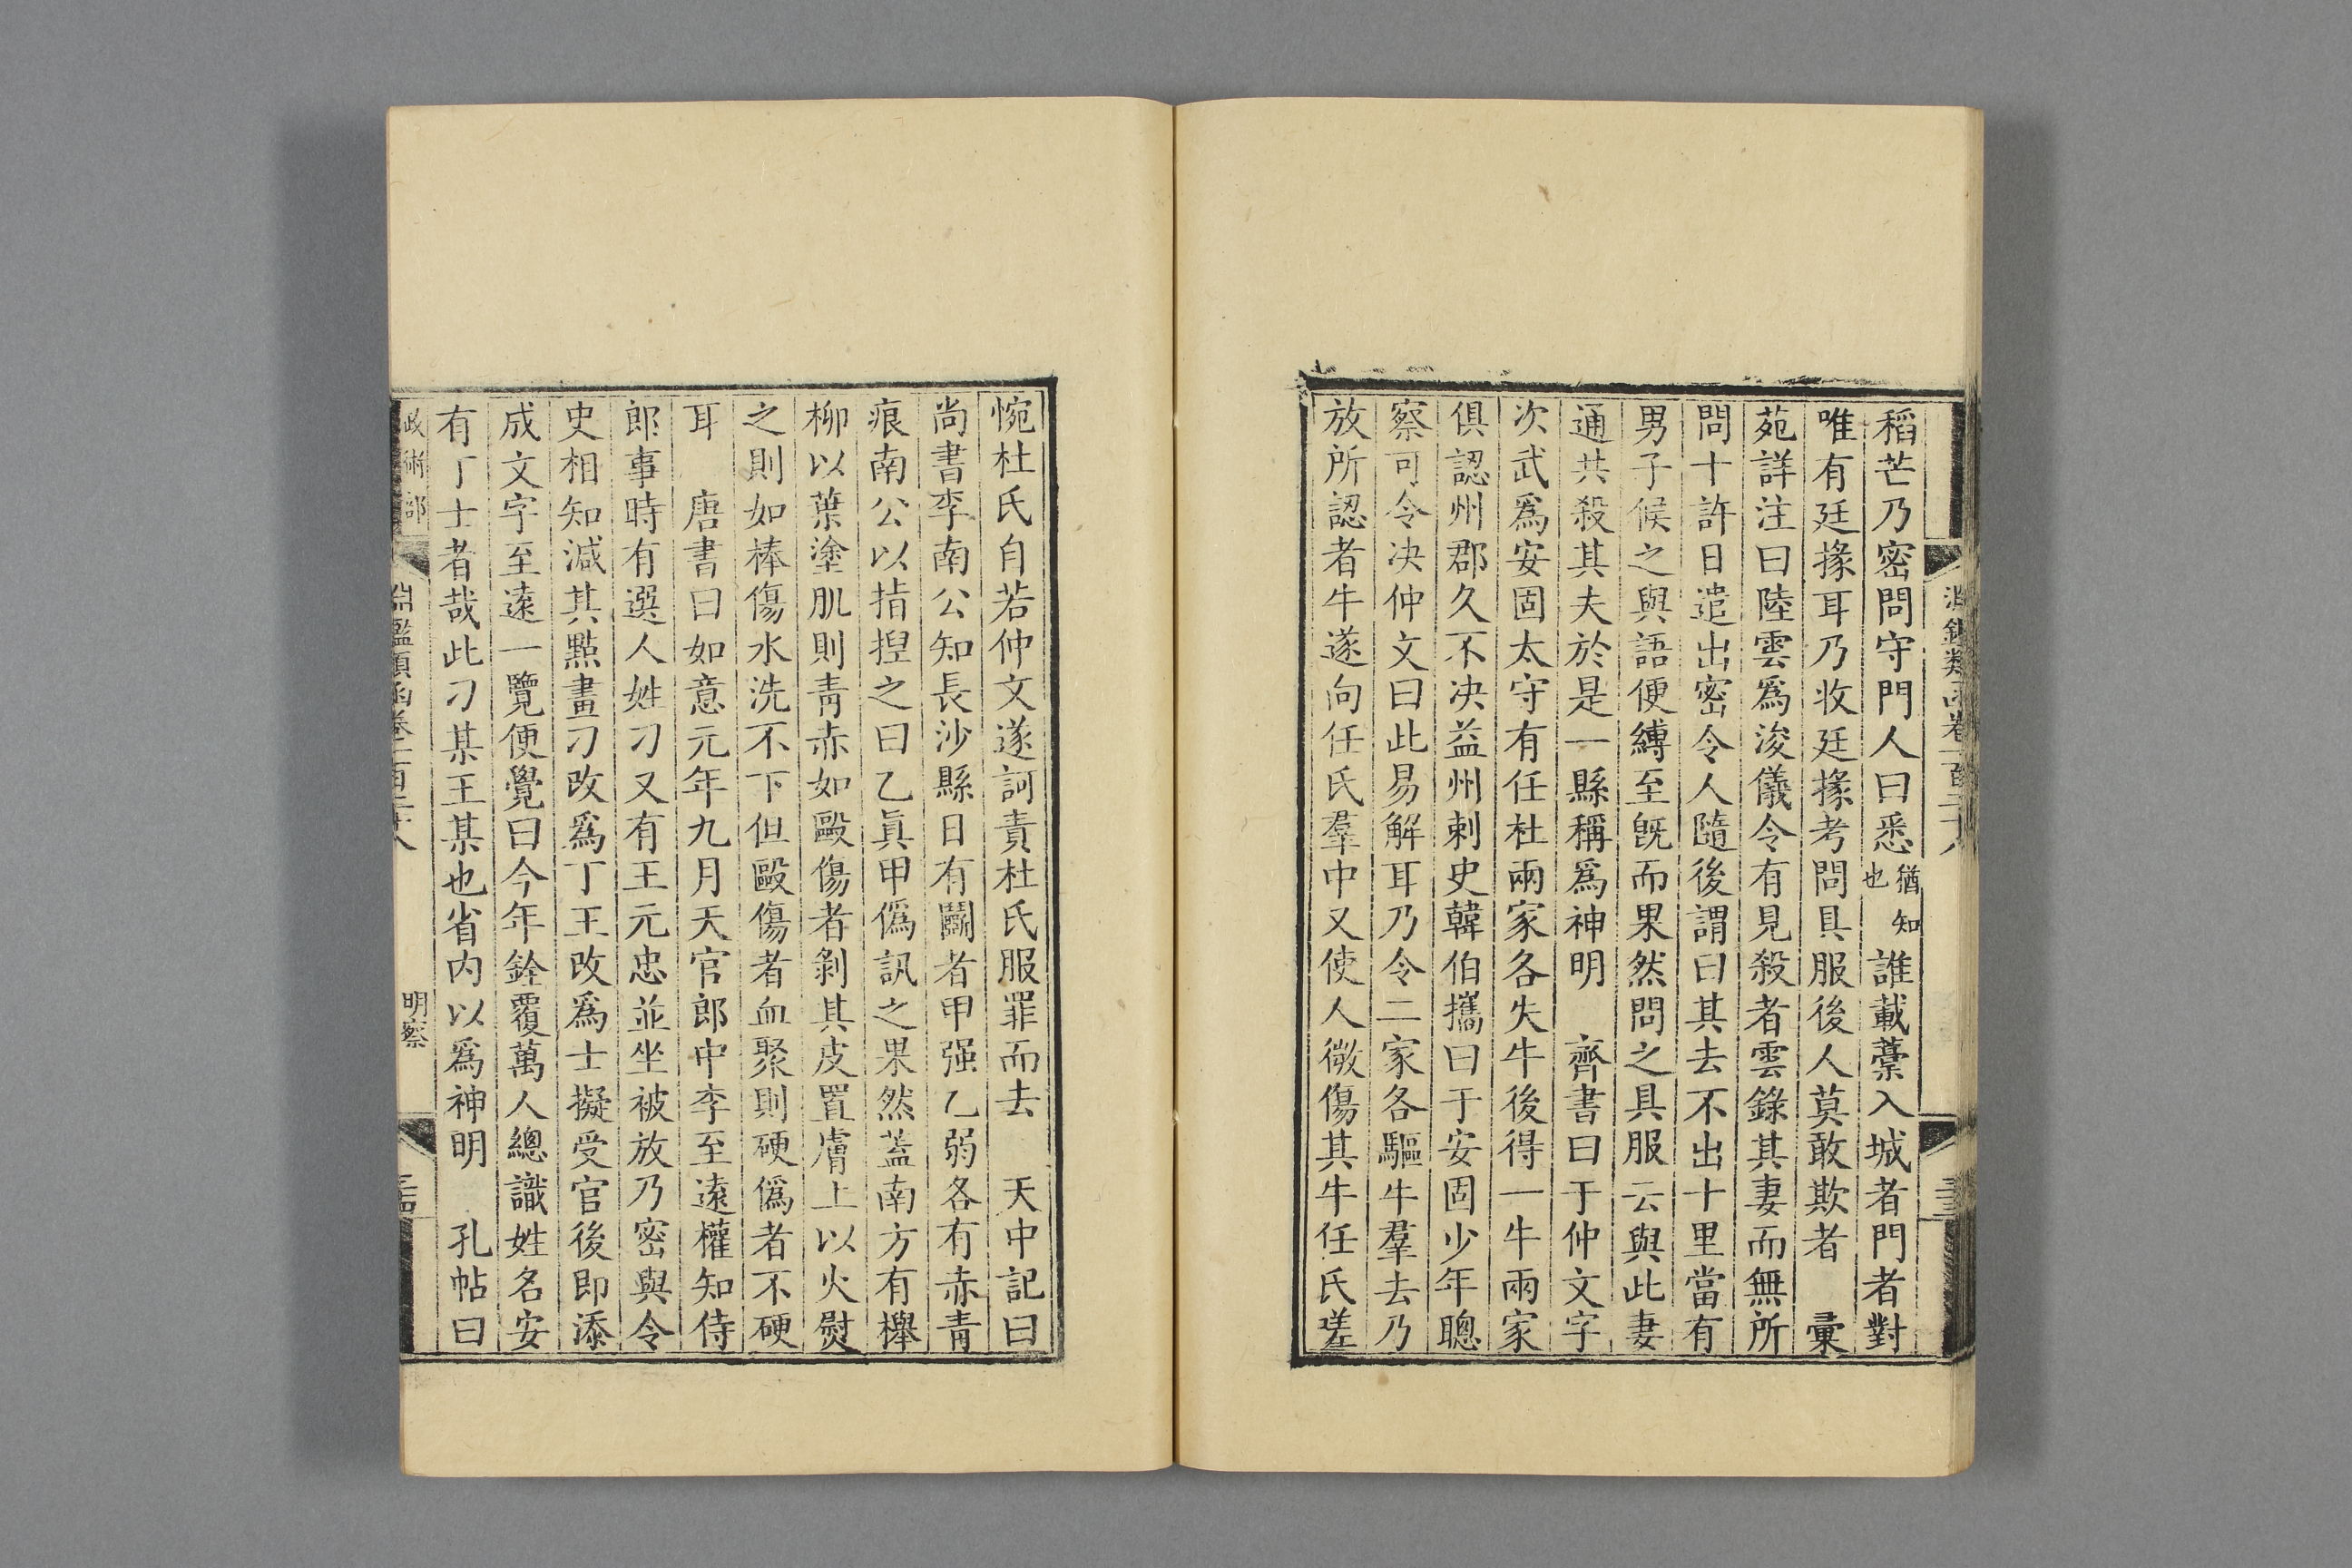 稻芒乃密問守門人曰悉猶知也誰載藁入城者門者對
唯有廷掾耳乃收廷掾考問具服後人莫敢欺者　彙
苑詳注曰陸雲爲浚儀令有見殺者雲錄其妻而無所
問十許日遣出密令人隨後謂曰其去不出十里當有
男子候之與語便縛至旣而果然問之具服云與此妻
通共殺其夫於是一縣稱爲神明　齊書曰于仲文字
次武爲安固太守有任杜兩家各失牛後得一牛兩家
俱認州郡久不决益州刺史韓伯攜曰于安固少年聰
察可令决仲文曰此易解耳乃令二家各驅牛羣去乃
放所認者牛遂向任氏羣中又使人微傷其牛任氏嗟
惋杜氏自若仲文遂訶責杜氏服罪而去　天中記曰
尚書李南公知長沙縣日有鬭者甲强乙弱各有赤靑
痕南公以指揑之曰乙眞甲僞訊之果然蓋南方有櫸
柳以葉塗肌則靑赤如毆傷者剝其皮置膚上以火熨
之則如棒傷水洗不下但毆傷者血聚則硬僞者不硬
耳　唐書曰如意元年九月天官郎中李至遠權知侍
郎事時有選人姓刁又有王元忠並坐被放乃密與令
史相知減其點畫刁改爲丁王改爲士擬受官後即添
成文字至遠一覽便覺曰今年銓覆萬人總識姓名安
有丁士者哉此刁某王某也省内以爲神明　孔帖曰
政術部
淵鑑類函卷一百二十八
明察